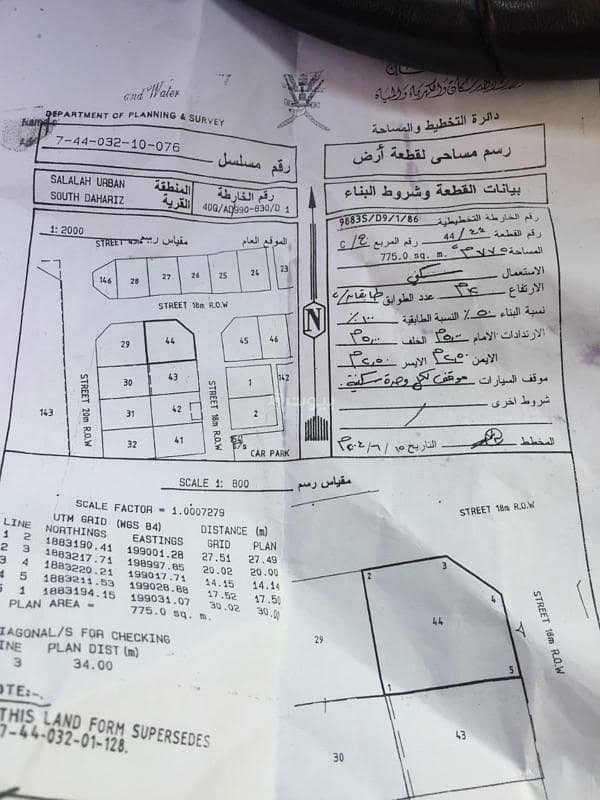 and Water
والكهرباء والمياه
DEPARTMENT OF PLANNING & SURVEY
دائرة التخطيط والمساحة
7-44-032-10-076
رقم مسلسل
رسم مساحى لقطعة أرض
SALALAH URBAN
SOUTH DAHARIZ
المنطقة
القرية
رقم الخارطة
40Q/AD990-830/D 1
بيانات القطعة وشروط البناء
1: 2000
مقياس رسم
الموقع العام
رقم الخارطة التخطيطية 98835/D9/1/86
رقم القطعة 44/٤٤ رقم المربع C/ج
المساحة ٧٧٥م٢
775.0 sq. m.
الاستعمال سكني
الارتفاع عدد الطوابق طابقان
نسبة البناء ٥٠٪ النسبة الطابقية ١٠٠٪
الارتدادات الامام الخلف
الايمن الايسر
موقف السيارات موقف لكل وحدة سكنية
شروط اخرى
المخطط التاريخ
146 28 27 26 25 24 23
STREET 18m R.O.W
29 44 45 46
30 43 1 142
31 42 2
32 41
143
STREET 20m R.O.W
STREET 18m R.O.W
CAR PARK
N
SCALE 1: 800
مقياس رسم
SCALE FACTOR = 1.0007279
UTM GRID (WGS 84) DISTANCE (m)
LINE NORTHINGS EASTINGS GRID PLAN
1 2 1883190.41 199001.28 27.51 27.49
2 3 1883217.71 198997.85 20.02 20.00
3 4 1883220.21 199017.71 14.15 14.14
4 5 1883211.53 199028.88 17.52 17.50
5 1 1883194.15 199031.07 30.02 30.00
PLAN AREA = 775.0 sq. m.
DIAGONAL/S FOR CHECKING
LINE PLAN DIST (m)
3 34.00
NOTE:-
THIS LAND FORM SUPERSEDES
7-44-032-01-128.
STREET 18m R.O.W
STREET 18m R.O.W
2 3
4
29 44
1 5
30 43